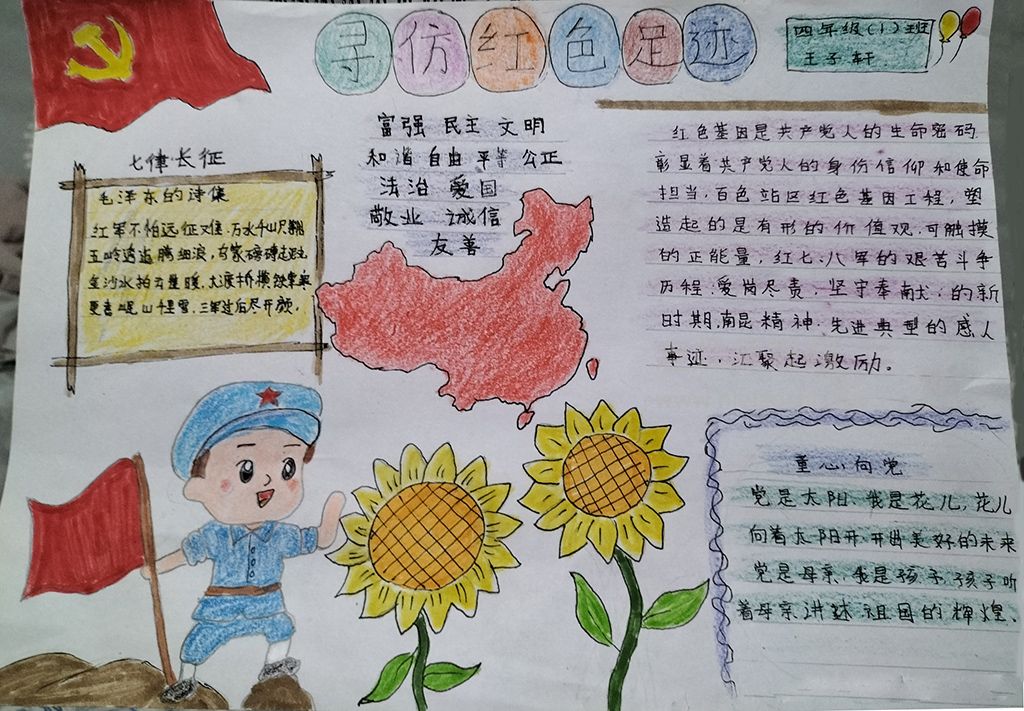 寻仿红色足迹
四年级（1）班
王子轩
富强 民主 文明
和谐 自由 平等 公正
法治 爱国
敬业 诚信
友善
七律长征
毛泽东的诗集
红军不怕远征难.万水千山只
五岭逶迤腾细浪，乌蒙磅礴走
金沙水拍云暖，大渡桥横铁寒
更喜岷山千里雪，三军过后尽开颜，
红色基因是共产党人的生命密码
彰显着共产党人的身份信仰和使命
担当，百色站区红色基因工程，塑
造起的是有形的价值观，可触摸
的正能量，红七、八军的艰苦斗争
历程：爱岗尽责，坚守奉献，的新
时期，南昆精神.先进典型的感人
事迹，汇聚起激励。
童心向党
党是太阳，我是花儿，花儿
向着太阳开，开出美好的未来
党是母亲，我是孩子，孩子听
着母亲讲述祖国的辉煌、